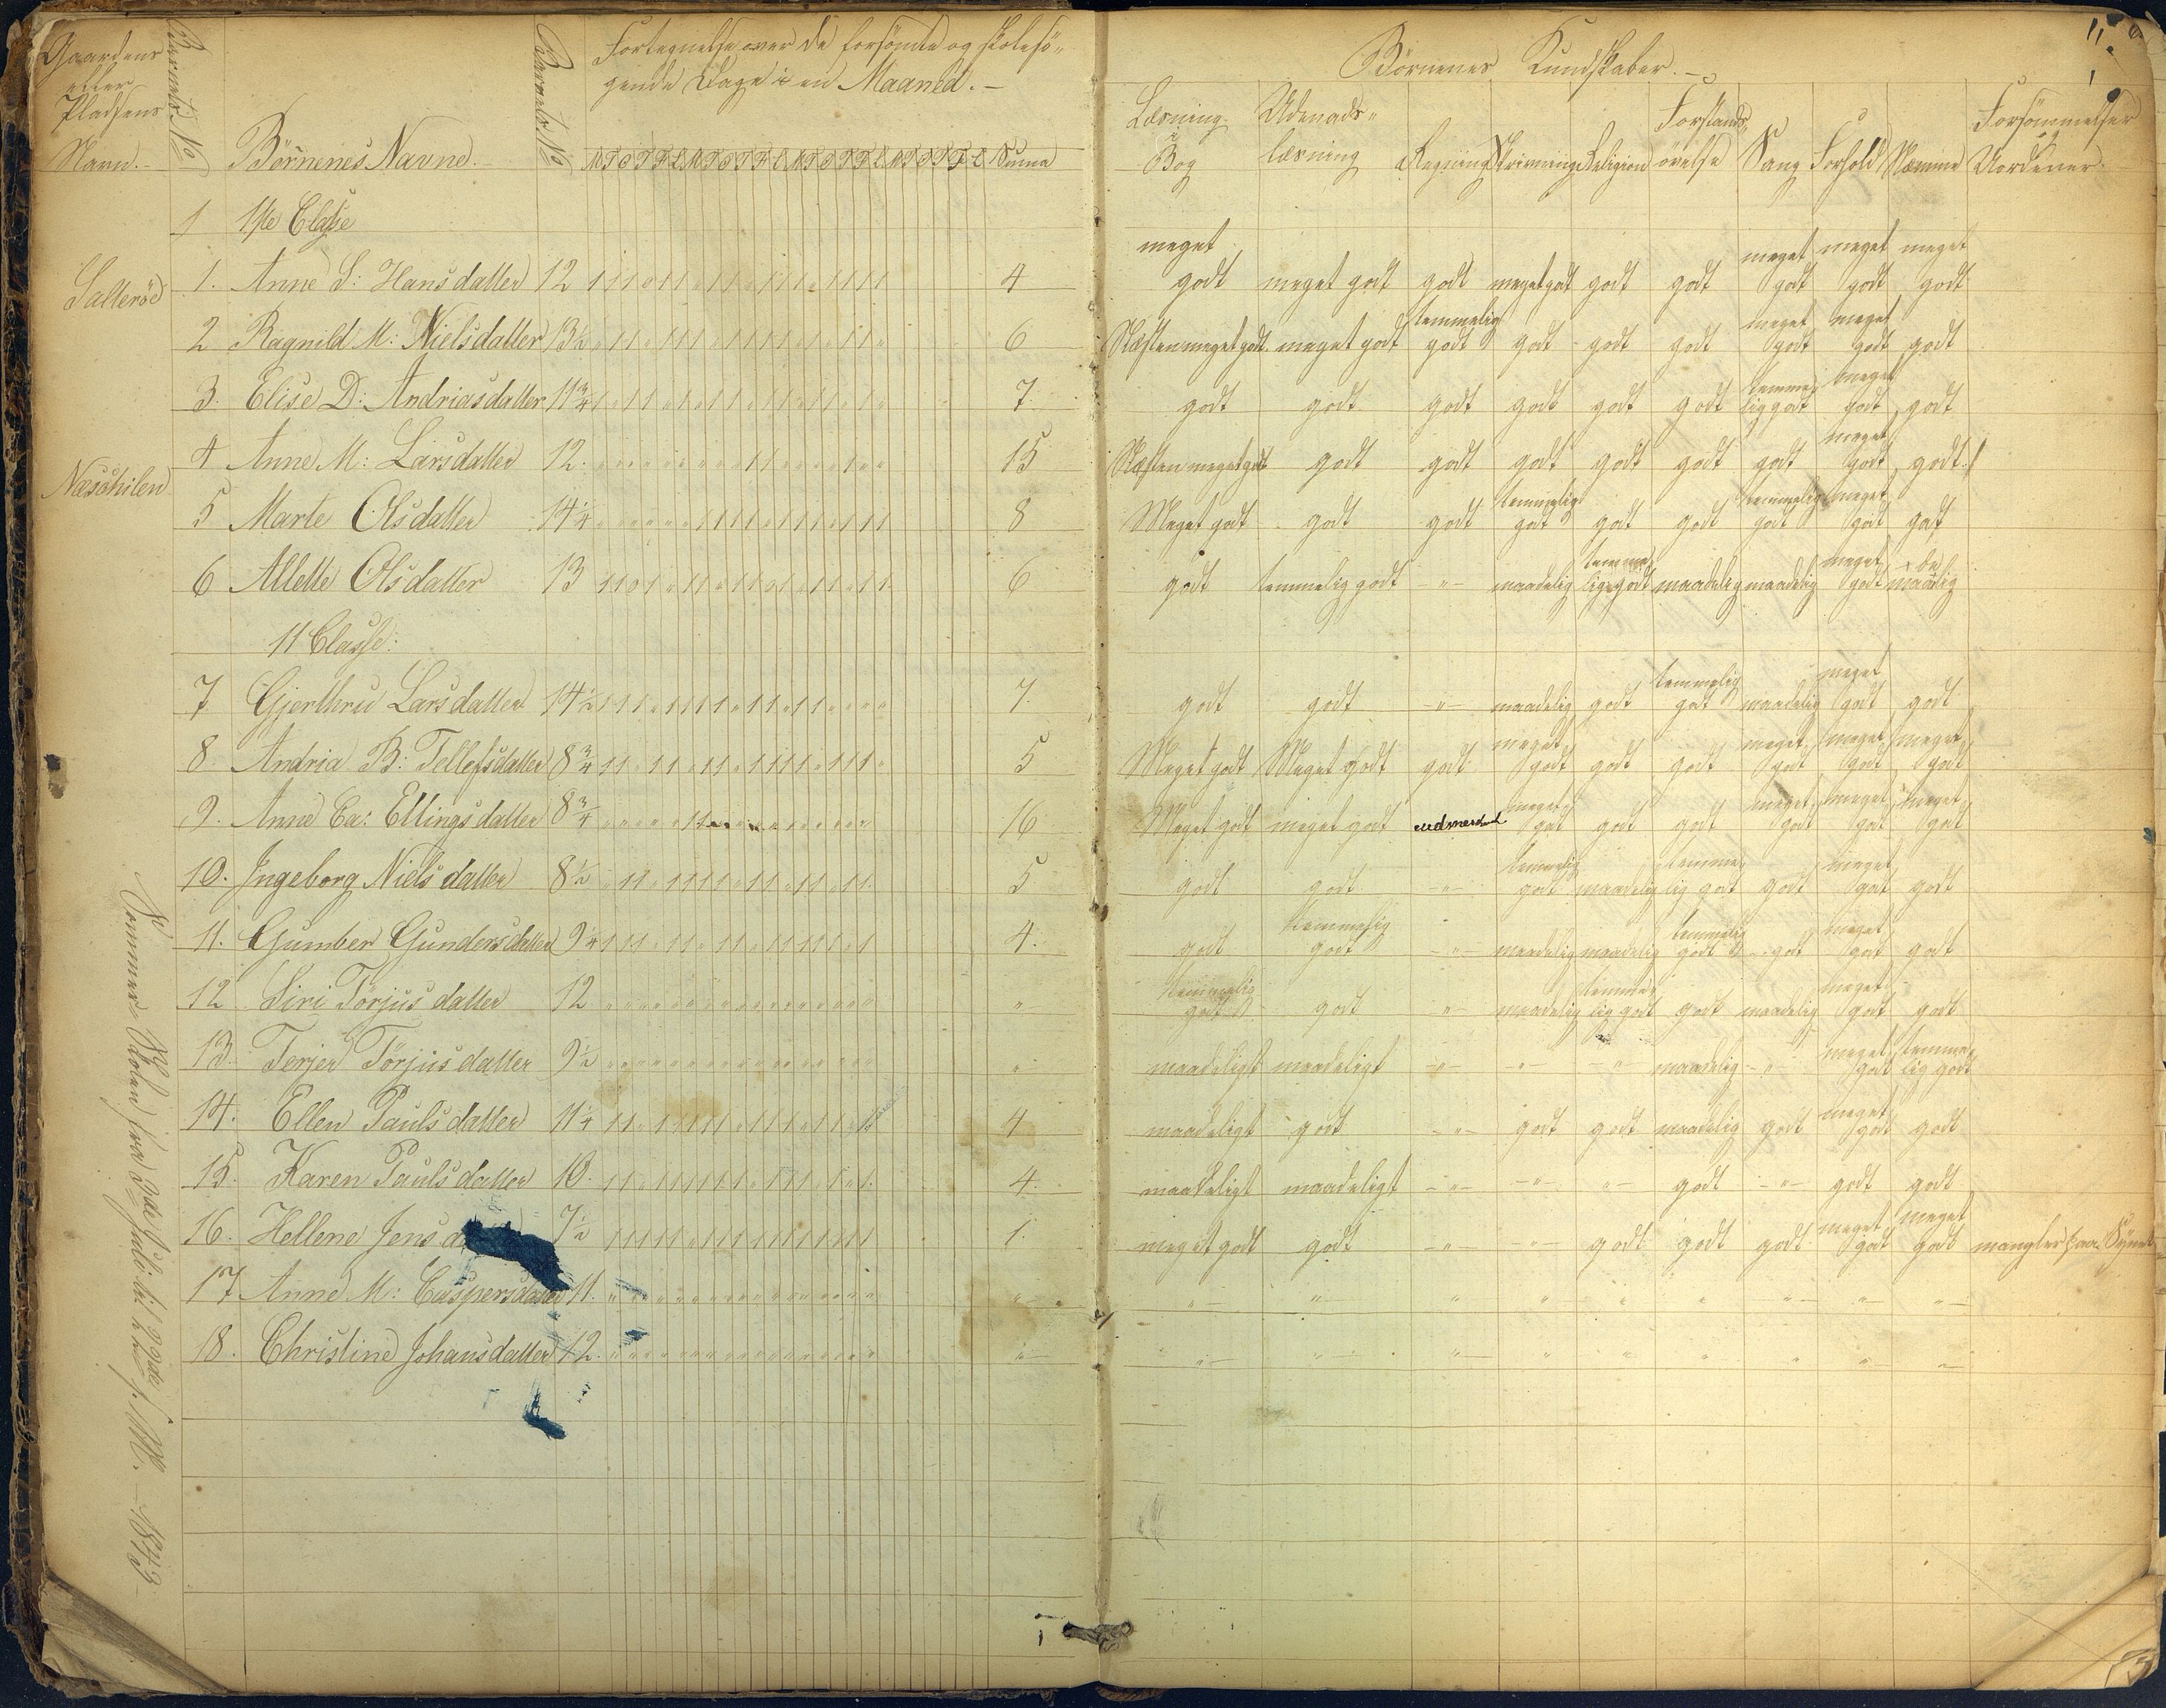 Gaardens
eller
Pladsens
Navn.
Barnets No
Børnenes Navne.
Barnets No
Fortegnelse over de forsömte og skolesö-
gende Dage i en Maaned. -
M T O T F L M T O T F L M T O T F L M T O T F L Summa
Börnenes Kundskaber. -
Læsning i Bog
Udenads-læsning
Regning
Skrivning
Religion
Forstands-övelse
Sang
Forhold
Nemme
Forsömmelser og Uordener
1 1ste Classe
Salteröd 1. Anne S: Hansdatter 12 4 meget godt meget godt godt meget godt godt godt meget godt meget godt meget godt
2 Ragnild M: Nielsdatter 13½ 6 Næsten meget godt meget godt temmelig godt godt godt godt meget godt meget godt godt
3. Elise D: Andriasdatter 11¾ 7 godt godt godt godt godt godt temmelig godt meget godt godt
4 Anne M: Larsdatter 12. 15 Næsten meget godt godt godt godt godt godt godt meget godt godt
Næschilen
5 Marte Olsdatter 14¼ 8 Meget godt godt godt temmelig godt godt godt temmelig godt meget godt godt
6 Allette Olsdatter 13 6 godt temmelig godt -"- maadelig temmelig godt maadelig maadelig meget godt maadelig
11 Classe:
7 Gjerthru Larsdatter 14½ 7. godt godt -"- maadelig godt temmelig godt maadelig meget godt godt
8. Andria B: Tellefsdatter 8¾ 5 Meget godt Meget godt godt meget godt godt godt meget godt meget godt meget godt
9. Anne Ca: Ellingsdatter 8¾ 16 Meget godt meget godt meget godt godt godt meget godt meget godt meget godt
10. Ingeborg Nielsdatter 8½ 5 godt godt -"- temmelig godt maadelig temmelig godt godt meget godt godt
11. Gumber Gundersdatter 9¼ 4. godt temmelig godt -"- maadelig maadelig temmelig godt godt meget godt godt
12 Siri Törjusdatter 12 " temmelig godt godt -"- maadelig temmelig godt godt maadelig meget godt godt
13. Terjer Törjusdatter 9½ " maadeligt maadeligt -"- -"- -"- maadelig -"- meget godt temmelig godt
14. Ellen Paulsdatter 11¼ 4 maadeligt godt -"- godt godt maadelig godt meget godt godt
15. Karen Paulsdatter 10. 4. maadeligt maadeligt -"- -"- "- godt -"- godt godt
16. Hellene Jens d 7½ 1. meget godt godt -"- -"- godt godt godt meget godt meget godt mangler paa Synet
17 Anne M: Caspersdatter 11. " " " " " " " " " "
18. Christine Johansdatter 12. " " " " " " " " " "
Sommer Skolen fra 3die Juli til 29de s. M. - 1843 -